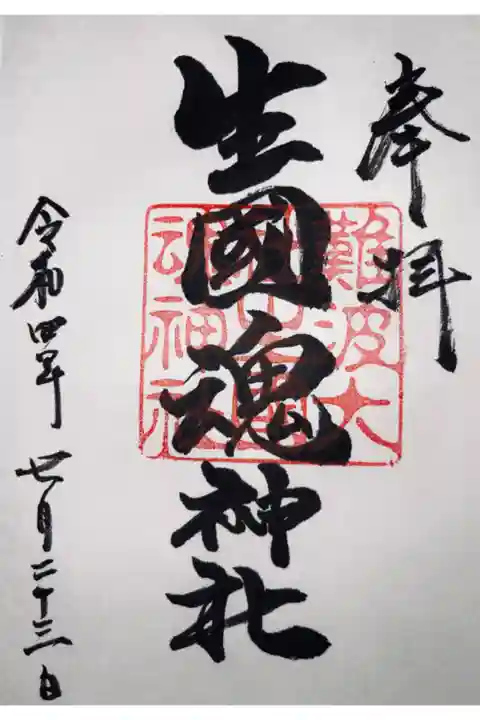 奉拝
生國魂神社
難波大
社生國
魂神社
令和四年 月二十三日